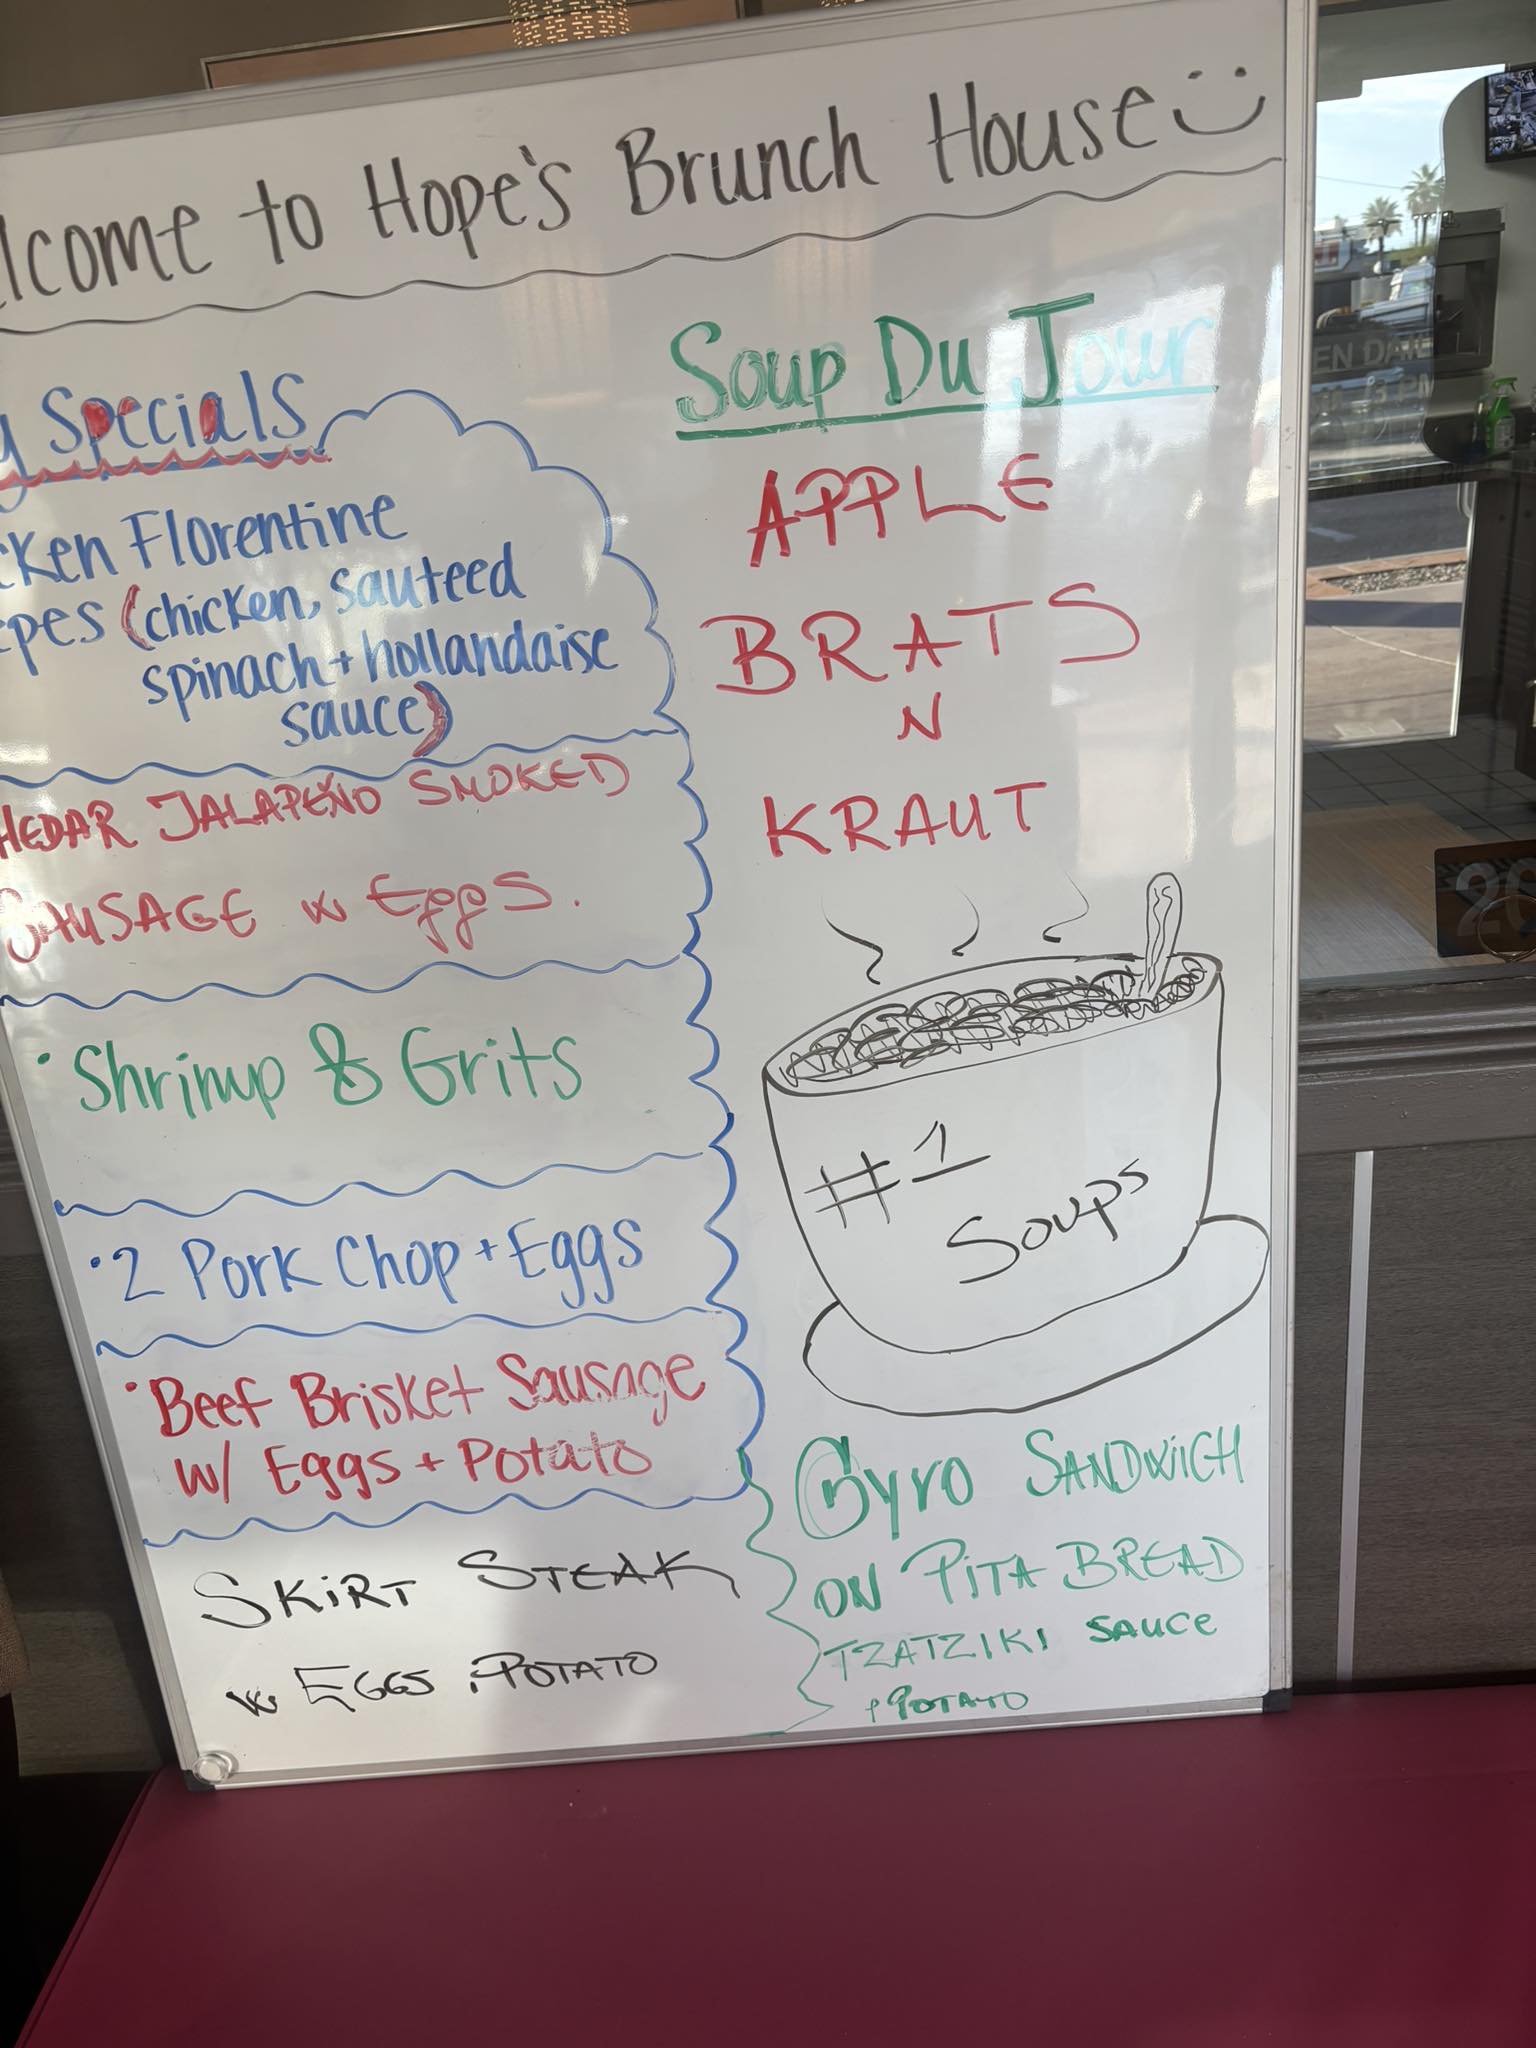 lcome to Hope's Brunch House
y Specials
cken Florentine
epes (chicken, sauteed
spinach + hollandaise
sauce)
HEDAR JALAPEÑO SMOKED
SAUSAGE w EggS.
• Shrimp & Grits
• 2 Pork Chop + Eggs
• Beef Brisket Sausage
w/ Eggs + Potato
SKiRT STEAK
w EGGS + POTATO
Soup Du Jour
APPLE
BRATS
N
KRAUT
#1
Soups
Gyro SANDWiCH
ON PiTA BREAD
TZATZIKI SAUCE
+ POTATO
EN DAI
PM
20